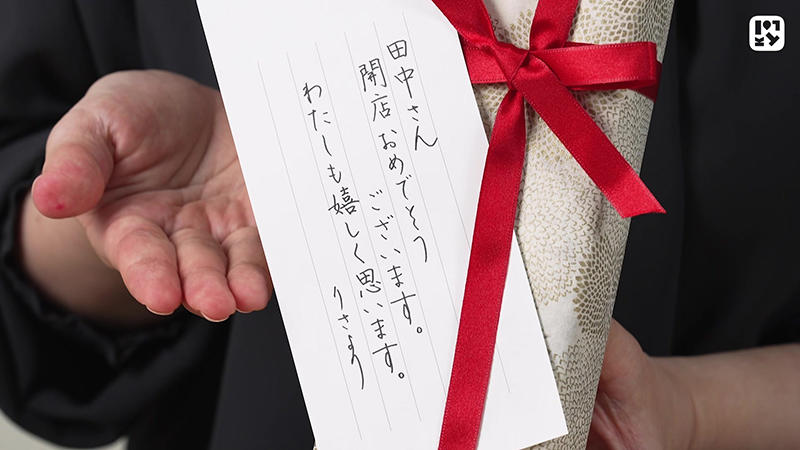 田中さん
開店おめでとう
ございます。
わたしも嬉しく思います。
りさより